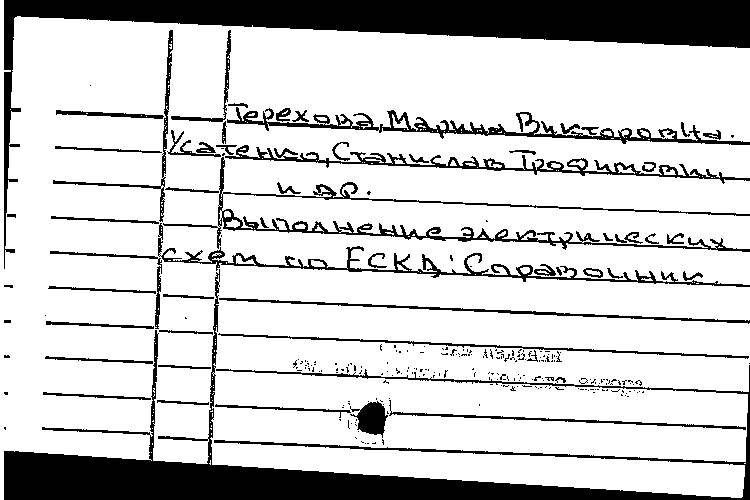 Терехова, Марина Викторовна.
Усатенко, Станислав Трофимович
и др.
Выполнение электрических
схем по ЕСКД: Справочник.